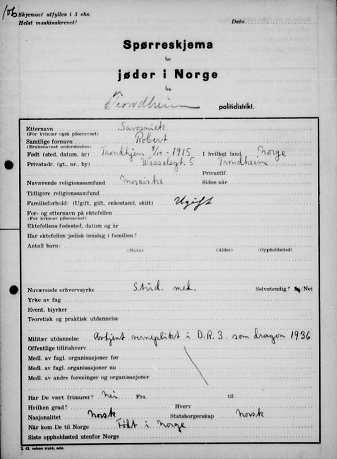 106
Skjemaet utfylles i 3 eks.
Helst maskinskrevet!
Dato
Spørreskjema
for
jøder i Norge
fra
Trondheim politidistrikt.
Etternavn Savosnick
(For kvinner også pikenavnet)
Samtlige fornavn Robert
(Bruksnavnet understrekes)
Født (sted, datum, år) Trondhjem 1915 I hvilket land Norge
Privatadr. (gt., nr., by) Wesselsgt. 5 Trondheim
Privattlf.
Nåværende religionssamfund Mosaiske Siden når
Tidligere religionssamfund
Familieforhold: (Ugift, gift, enkestand, skilt) Ugift
For- og etternavn på ektefellen
(For kvinner pikenavnet)
Ektefellens fødested, datum og år
Har ektefellen jødisk inndag i familien?
Antall barn:
(Navn) (Alder) (Oppholdssted)
Nuværende erhvervsyrke Stud. med. Selvstendig? Ja/Nei
Yrke av fag
Event. biyrker
Teoretisk og praktisk utdannelse
Militær utdannelse Avtjent verneplikt i D.R. 3. som dragon 1936
Offentlige tillitshverv
Medl. av fagl. organisasjoner før
Medl. av fagl. organisasjoner nu
Medl. av andre foreninger og organisasjoner
Har De vært frimurer? Nei Fra til
Hvilken grad? Hverv
Nasjonalitet norsk Statsborgerskap norsk
Når kom De til Norge Født i Norge
Siste oppholdssted utenfor Norge